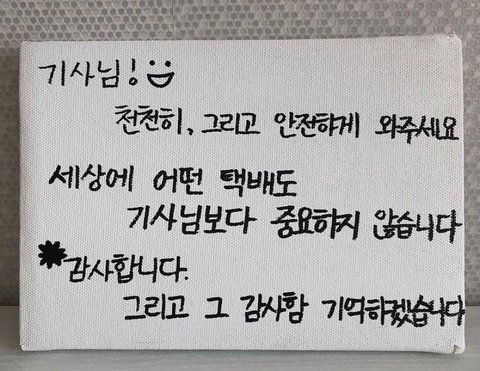 기사님!
천천히, 그리고 안전하게 와주세요
세상에 어떤 택배도
기사님보다 중요하지 않습니다
*감사합니다.
그리고 그 감사함 기억하겠습니다